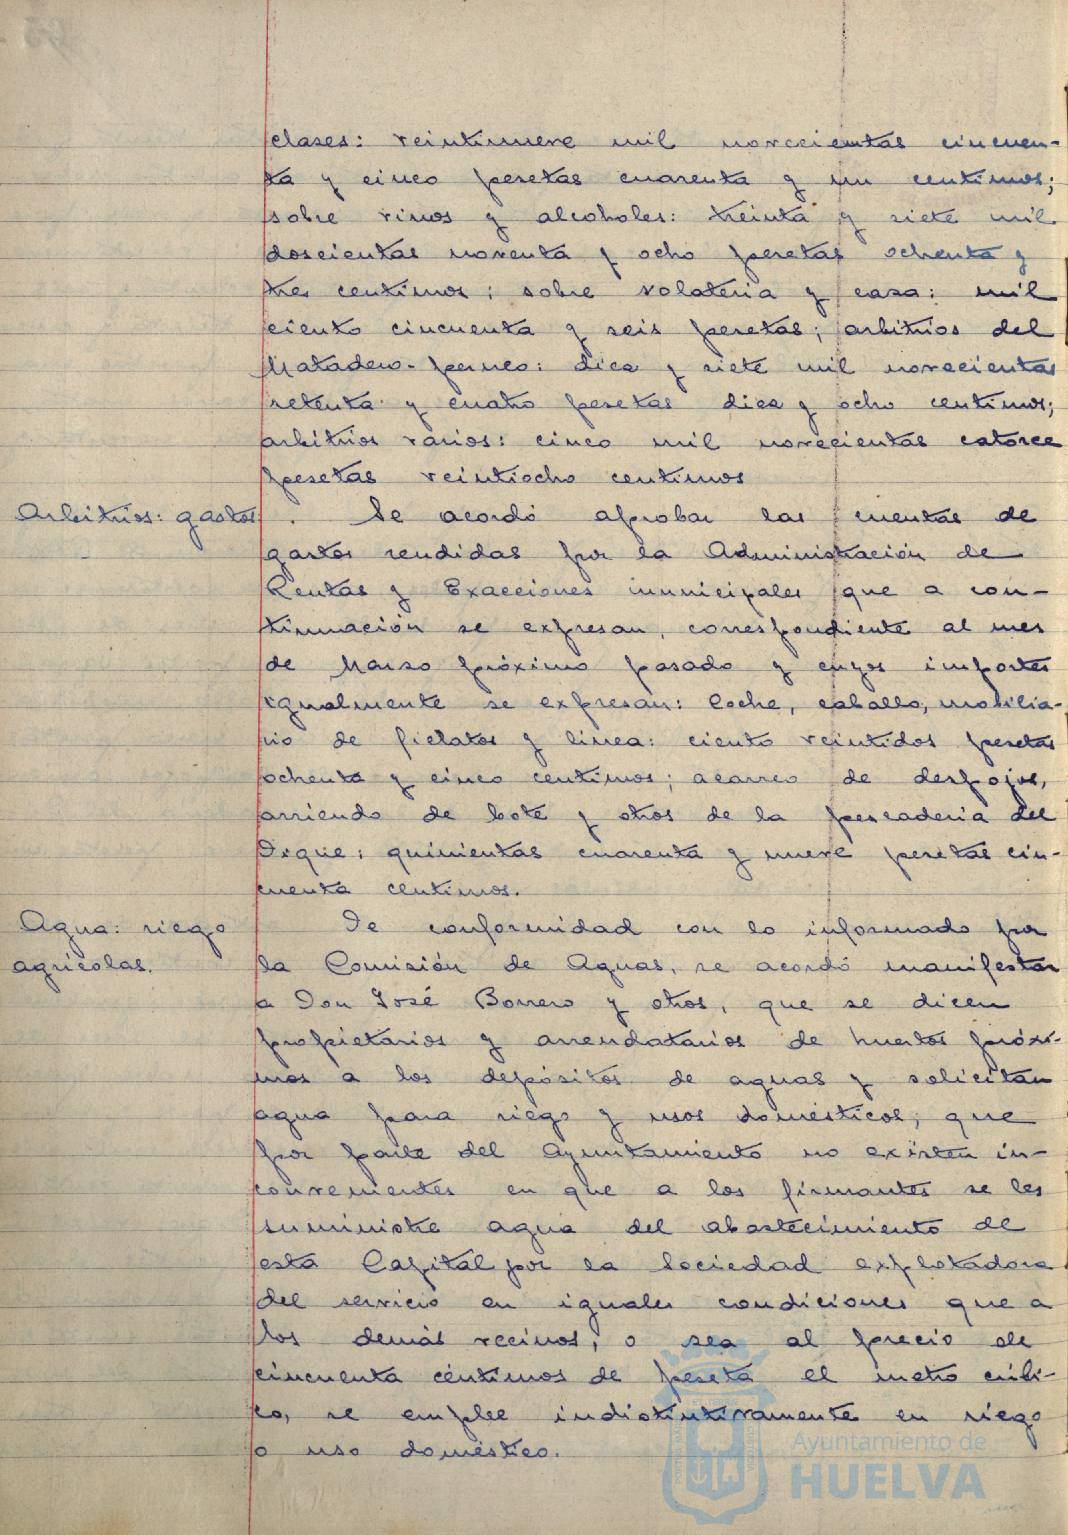 clases: veintinueve mil novecientas cincuen-
ta y cinco pesetas cuarenta y un centimos;
sobre vinos y alcoholes: treinta y siete mil
doscientas noventa y ocho pesetas ochenta y
tres centimos; sobre volateria y caza: mil
ciento cincuenta y seis pesetas; arbitrios del
Matadero-perneo: diez y siete mil novecientas
setenta y cuatro pesetas diez y ocho centimos;
arbitrios varios: cinco mil novecientas catorce
pesetas veintiocho centimos
Arbitrios: gastos. Se acordó aprobar las cuentas de
gastos rendidas por la Administración de
Rentas y Exacciones municipales que a con-
tinuación se expresan, correspondiente al mes
de Marzo próximo pasado y cuyos importes
igualmente se expresan: Coche, caballo, mobilia-
rio de fielatos y linea: ciento veintidos pesetas
ochenta y cinco centimos; acarreo de despojos,
arriendo de bote y otros de la pescaderia del
Dique: quinientas cuarenta y nueve pesetas cin-
cuenta centimos.
Agua: riego
agrícolas.
De conformidad con lo informado por
la Comisión de Aguas, se acordó manifestar
a Don José Borrero y otros, que se dicen
propietarios y arrendatarios de huertos próxi-
mos a los depósitos de aguas y solicitan
agua para riego y usos domésticos, que
por parte del Ayuntamiento no existen in-
convenientes en que a los firmantes se les
suministre agua del abastecimiento de
esta Capital por la Sociedad explotadora
del servicio en iguales condiciones que a
los demás vecinos, o sea al precio de
cincuenta céntimos de peseta el metro cúbi-
co, se emplee indistintivamente en riego
o uso doméstico.
Ayuntamiento de
HUELVA